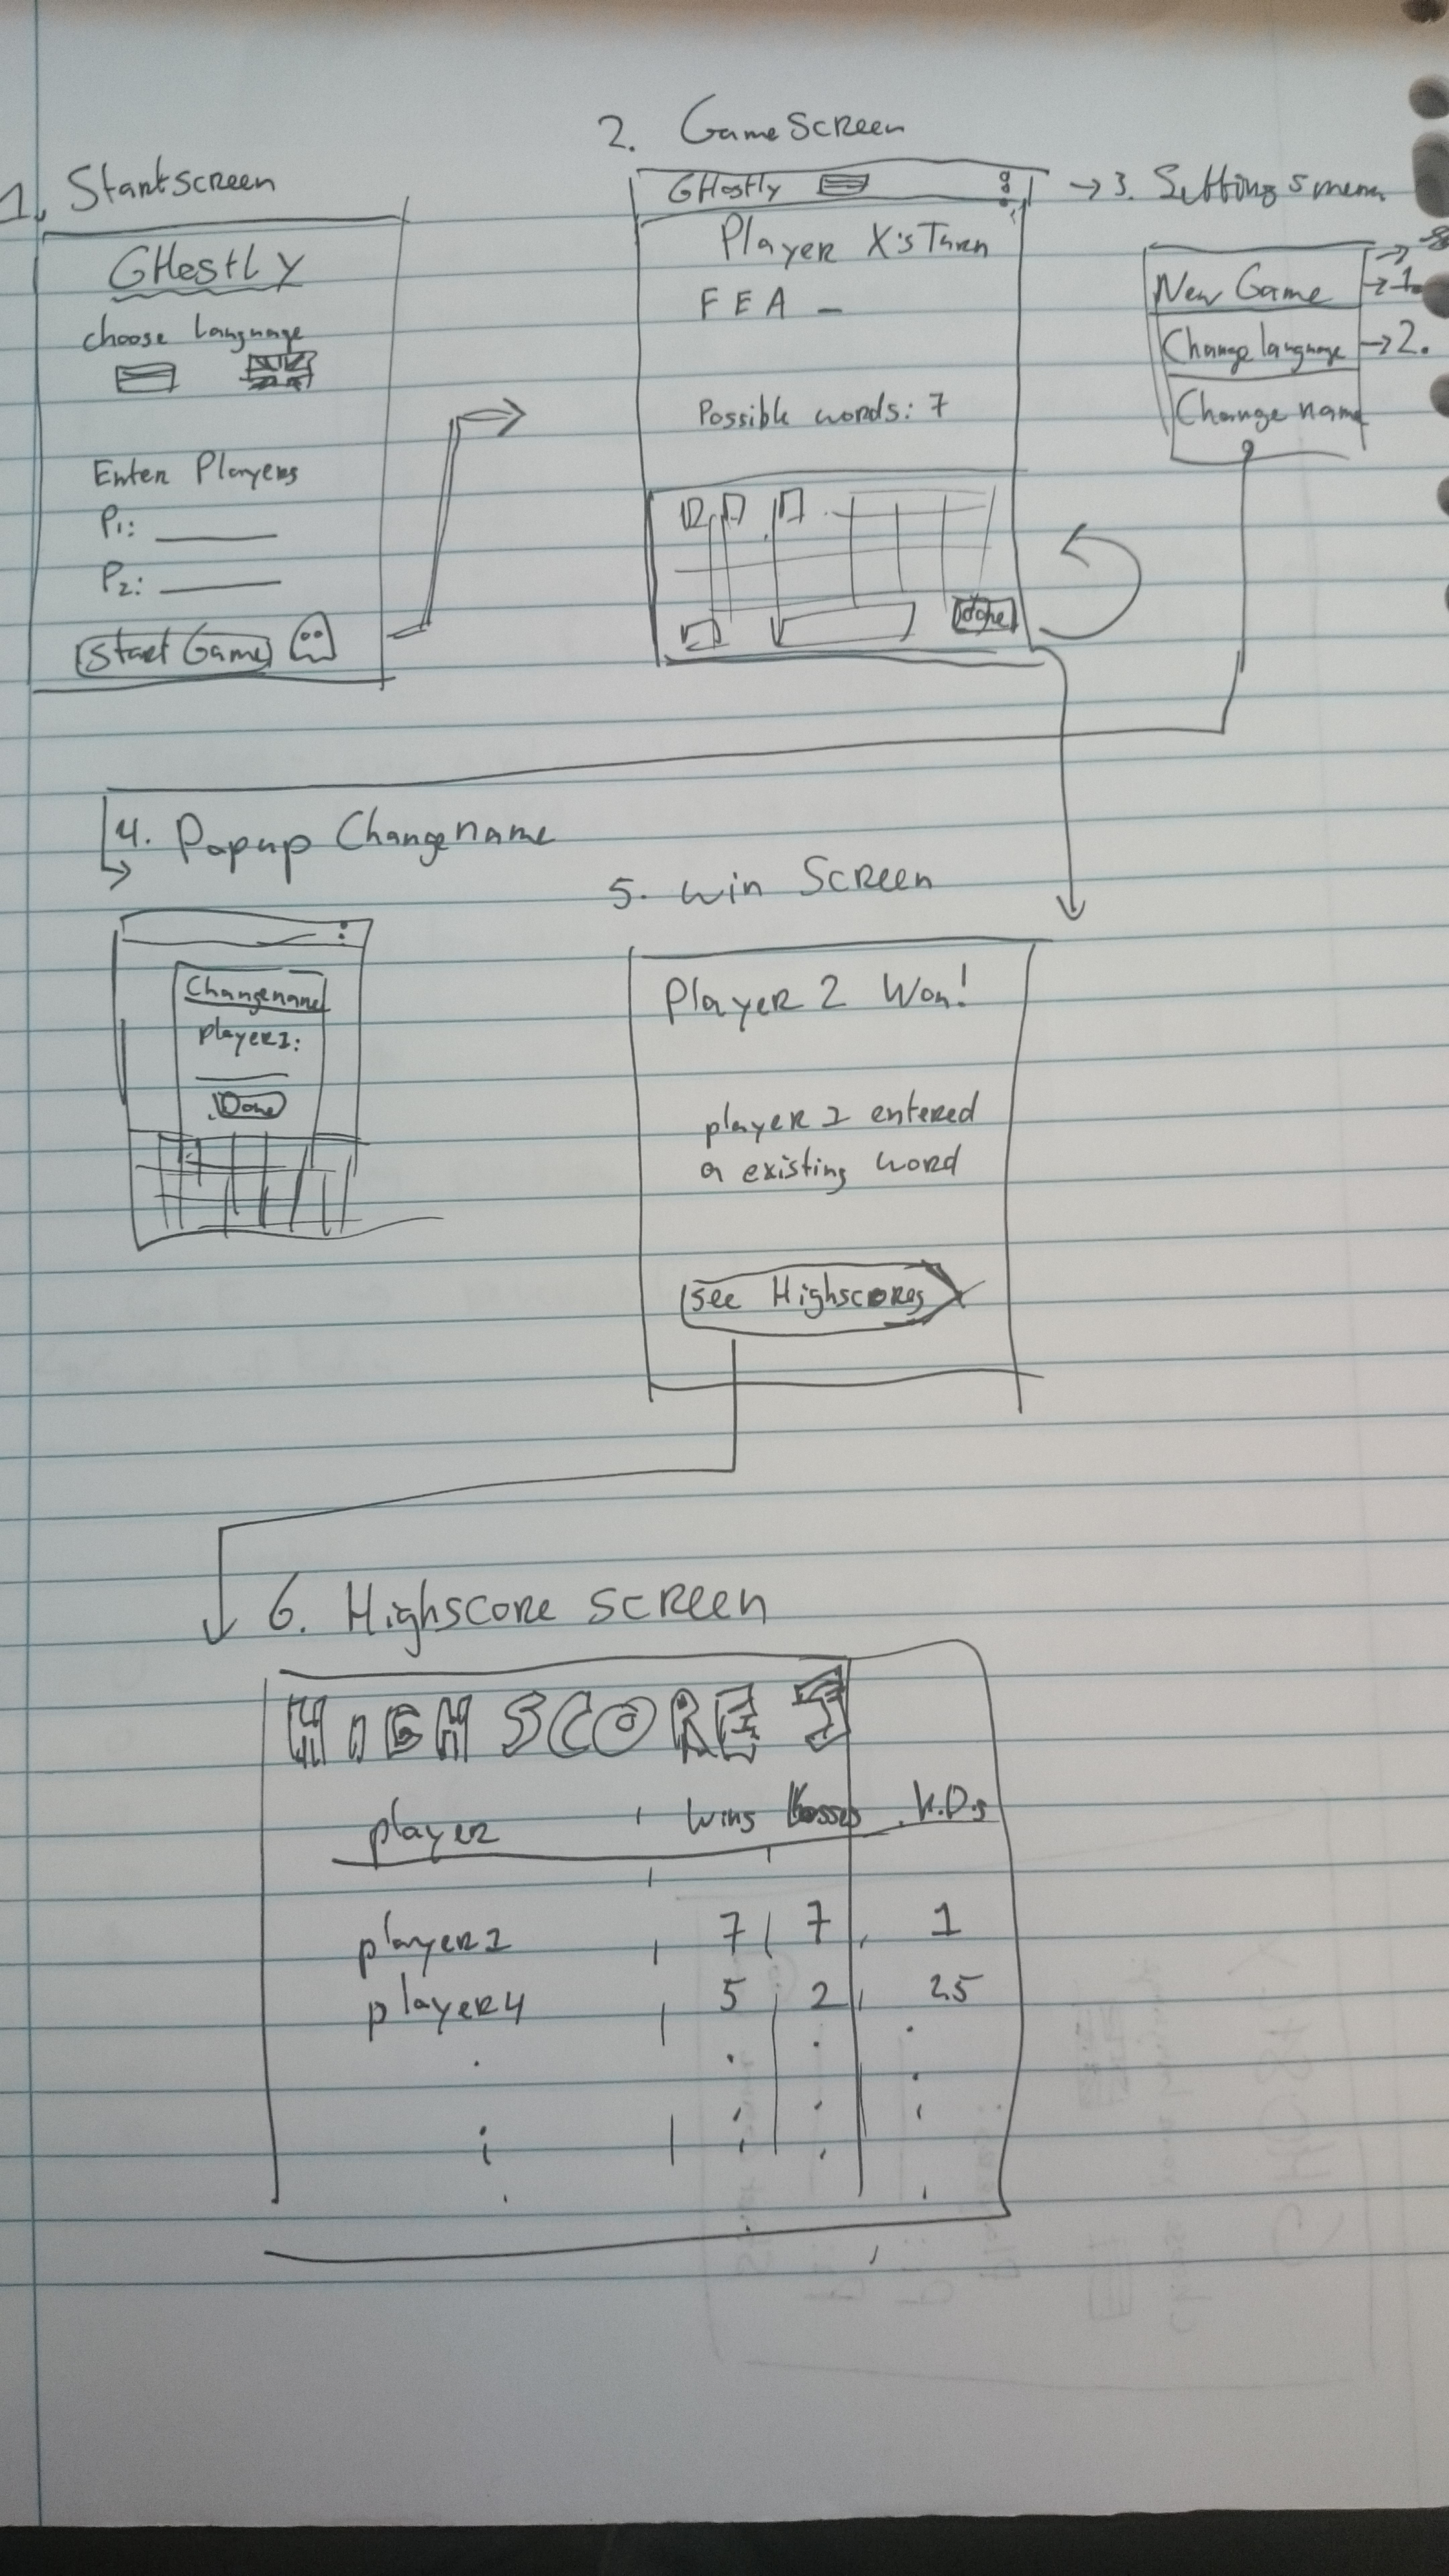 1. Startscreen
GHostly
choose language
Enter Players
P1:
P2:
Start Game
2. Game Screen
GHostly
Player X's Turn
F E A _
Possible words: 7
done
→ 3. Settings menu
New Game → 1.
Change language → 2.
Change name
4. Popup Changename
Changename
player1:
Done
5. Win Screen
Player 2 Won!
player 1 entered
a existing word
see Highscores
6. Highscore screen
HIGHSCORES
player wins losses K.D.s
player1 7 7 1
player4 5 2 2.5